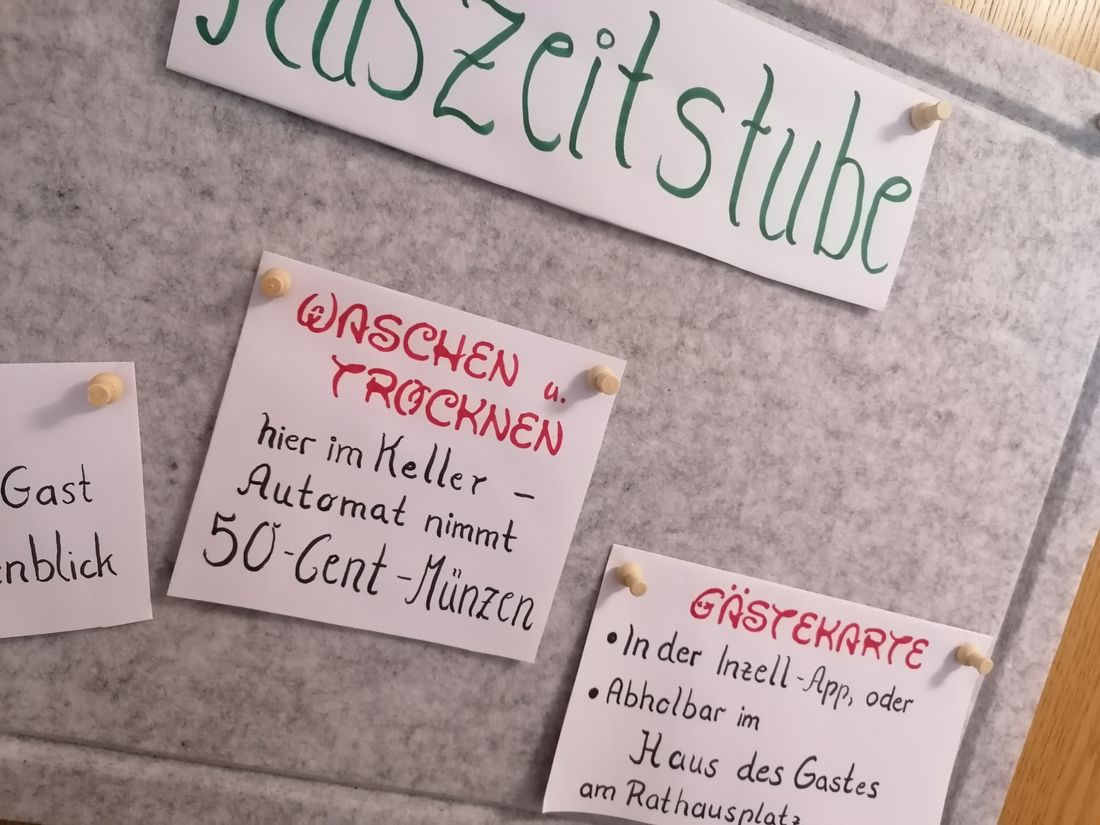 Auszeitstube
WASCHEN u.
TROCKNEN
hier im Keller –
Automat nimmt
50-Cent-Münzen
Gast
enblick
GÄSTEKARTE
• In der Inzell-App, oder
• Abholbar im
Haus des Gastes
am Rathausplatz